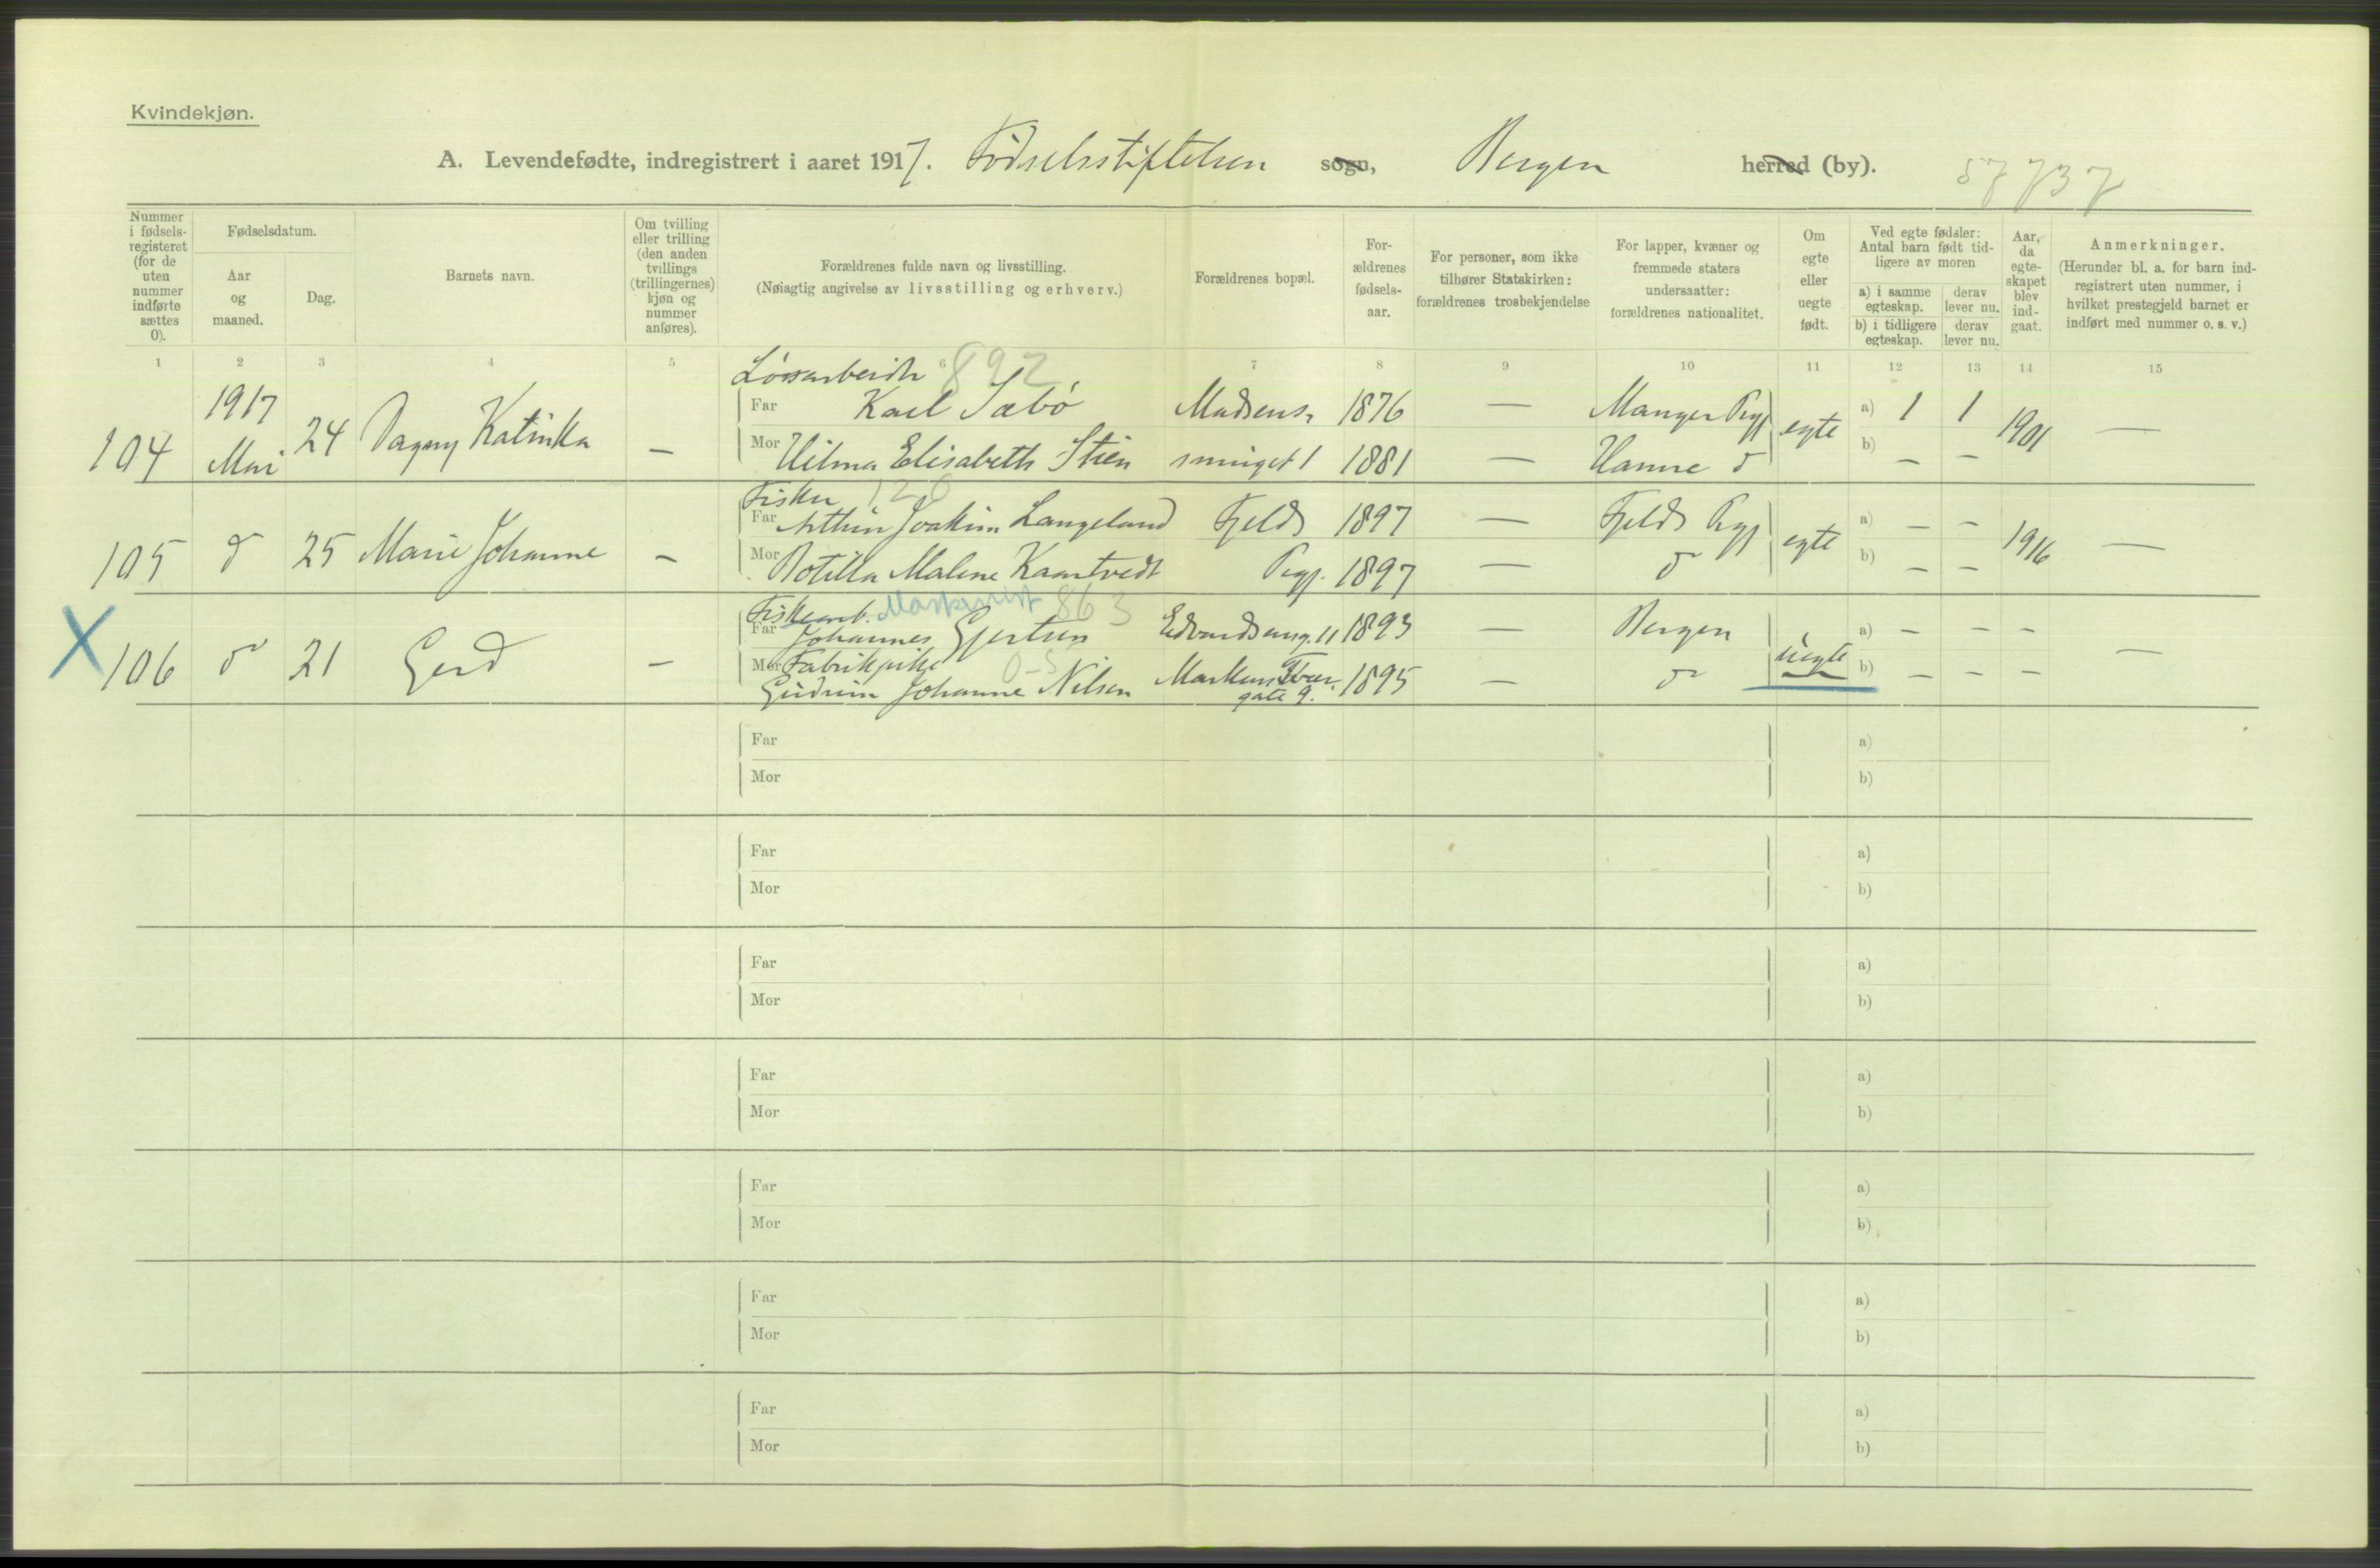 Kvindekjøn.
A. Levendefødte, indregistrert i aaret 1917. Fødselsstiftelsen sogn, Bergen herred (by). 57737
Nummer i fødsels-registeret (for de uten nummer indførte sættes 0).
Fødselsdatum.
Aar og maaned.
Dag.
Barnets navn.
Om tvilling eller trilling (den anden tvillings (trillingernes) kjøn og nummer anføres).
Forældrenes fulde navn og livsstilling.
(Nøiagtig angivelse av livsstilling og erhverv.)
Forældrenes bopæl.
For-ældrenes fødsels-aar.
For personer, som ikke tilhører Statskirken: forældrenes trosbekjendelse
For lapper, kvæner og fremmede staters undersaatter: forældrenes nationalitet.
Om egte eller uegte født.
Ved egte fødsler: Antal barn født tid-ligere av moren
a) i samme egteskap. derav lever nu.
b) i tidligere egteskap. derav lever nu.
Aar, da egte-skapet blev ind-gaat.
Anmerkninger.
(Herunder bl. a. for barn ind-registrert uten nummer, i hvilket prestegjeld barnet er indført med nummer o. s. v.)
1 2 3 4 5 6 7 8 9 10 11 12 13 14 15
Løsarbeider 892
1917 Far Karl Sæbø Madsens 1876 — Manger Pgj a) 1 1
104 Mai 24 Dagny Katinka — egte 1901 —
Mor Hilma Elisabeth Stien smuget 1 1881 — Hamre d b) — —
Fisker 120
Far Arthur Joakim Langeland Fjeld 1897 — Fjeld Pgj a) — —
105 d 25 Marie Johanne — egte 1916 —
Mor Botilla Malene Kaartvedt Pgj. 1897 — d b) — —
Fiskearb. Maskinist 863
Far Johannes Gjertsen Edvardseng. 11 1893 — Bergen a) — — —
X 106 d 21 Gerd — uegte —
Mor Fabrikpike 0-5
Gudrun Johanne Nilsen Markens Tvær gate 9. 1895 — d b) — — —
Far a)
Mor b)
Far a)
Mor b)
Far a)
Mor b)
Far a)
Mor b)
Far a)
Mor b)
Far a)
Mor b)
Far a)
Mor b)